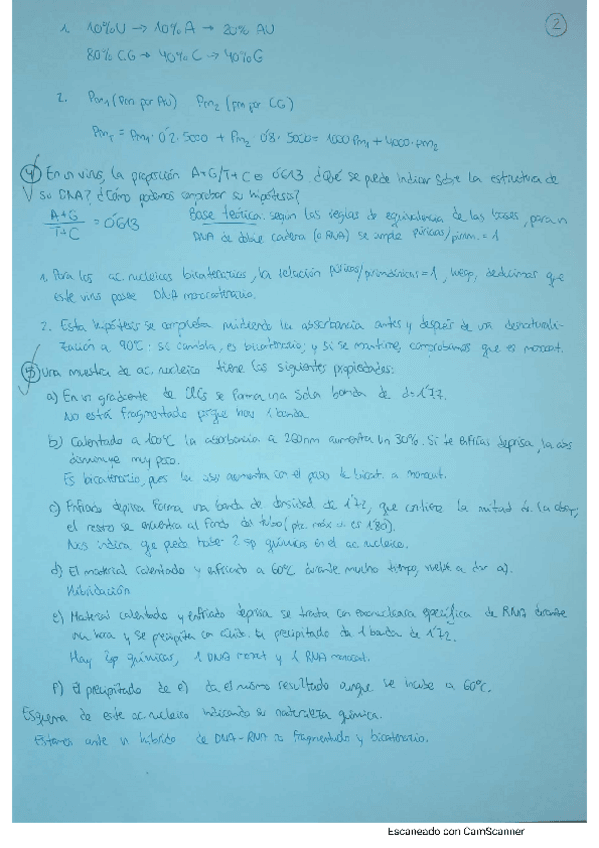 2
1. 10%U → 10% A → 20% AU
80% CG → 40% C → 40% G
2. Pm1 (Pm por AU) Pm2 (pm por CG)
PmT = Pm1 · 0'2 · 5000 + Pm2 · 0'8 · 5000 = 1000 Pm1 + 4000 · Pm2
4) En un virus, la proporción A+G/T+C es 0'613. ¿Qué se puede indicar sobre la estructura de
su DNA? ¿Cómo podemos comprobar su hipótesis?
A+G/T+C = 0'613 Base teórica: según las reglas de equivalencia de las bases, para un
DNA de doble cadena (o RNA) se cumple púricas/pirim. = 1
1. Para los ac. nucleicos bicatenarios, la relación púricas/pirimidínicas = 1, luego, deducimos que
este virus posee DNA monocatenario.
2. Esta hipótesis se comprueba midiendo la absorbancia antes y después de una desnaturali-
zación a 90ºC: si cambia, es bicatenario; y si se mantiene, comprobamos que es monocat.
5) Una muestra de ac. nucleico tiene las siguientes propiedades:
a) En un gradiente de ClCs se forma una sola banda de d=1'72.
No está fragmentado porque hay 1 banda
b) Calentado a 100ºC la absorbancia a 260nm aumenta un 30%. Si te enfrías deprisa, la abs
disminuye muy poco.
Es bicatenario, pues la abs aumenta con el paso de bicat. a monocat.
c) Enfriado deprisa forma una banda de densidad de 1'72, que contiene la mitad de la absor,
el resto se encuentra al fondo del tubo (ptc. máx es 1'80).
Nos indica que puede haber 2 sp químicas en el ac. nucleico.
d) El material calentado y enfriado a 60ºC durante mucho tiempo, vuelve a dar a).
Hibridación
e) Material calentado y enfriado deprisa se trata con exonucleasa específica de RNA durante
una hora y se precipita con ácido. El precipitado da 1 banda de 1'72.
Hay 2sp químicas, 1 DNA monocat y 1 RNA monocat.
f) El precipitado de e) da el mismo resultado aunque se incube a 60ºC.
Esquema de este ac. nucleico indicando su naturaleza química.
Estamos ante un híbrido de DNA-RNA no fragmentado y bicatenario.
Escaneado con CamScanner